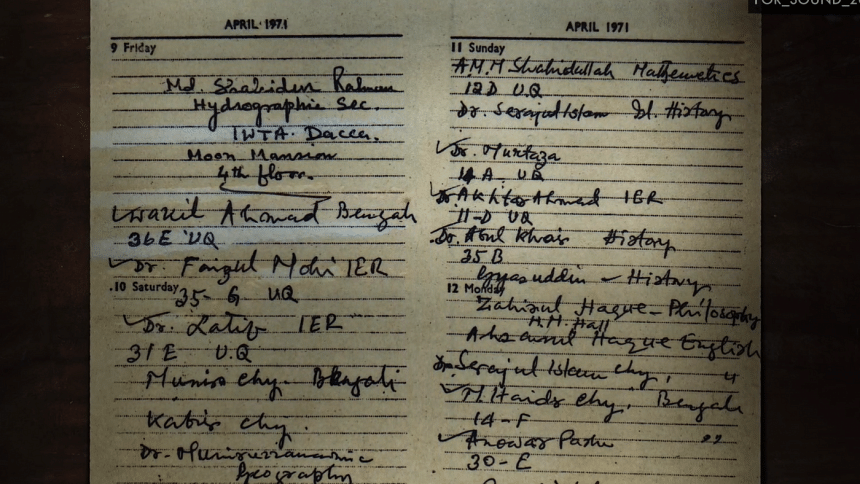 FOR_SOUND_20
APRIL 1971
9 Friday
Md. Shahidur Rahman
Hydrographic Sec.
IWTA. Dacca.
Moon Mansion
4th floor.
Wakil Ahmad Bengali
36E UQ
Dr. Faizul Mohi IER
10 Saturday
35-G UQ
Dr. Latif IER
31E U.Q
Munir chy. Bengali
Kabir chy.
Dr.
Geography
APRIL 1971
11 Sunday
A.M.M Shahidullah Mathematics
12D U.Q
Dr. Serajul Islam Isl. History
Dr. Murtaza
14A UQ
Dr. Akhtar Ahmed IER
11-D UQ
Dr. Abul Khair History
35B
Gyasuddin - History
12 Monday
Zahirul Haque - Philosophy
M.M. Hall
Ahsanul Haque English
Dr. Serajul Islam chy, "
M. Haidr chy, Bengali
14-F
Anowar Pasha "
30-E